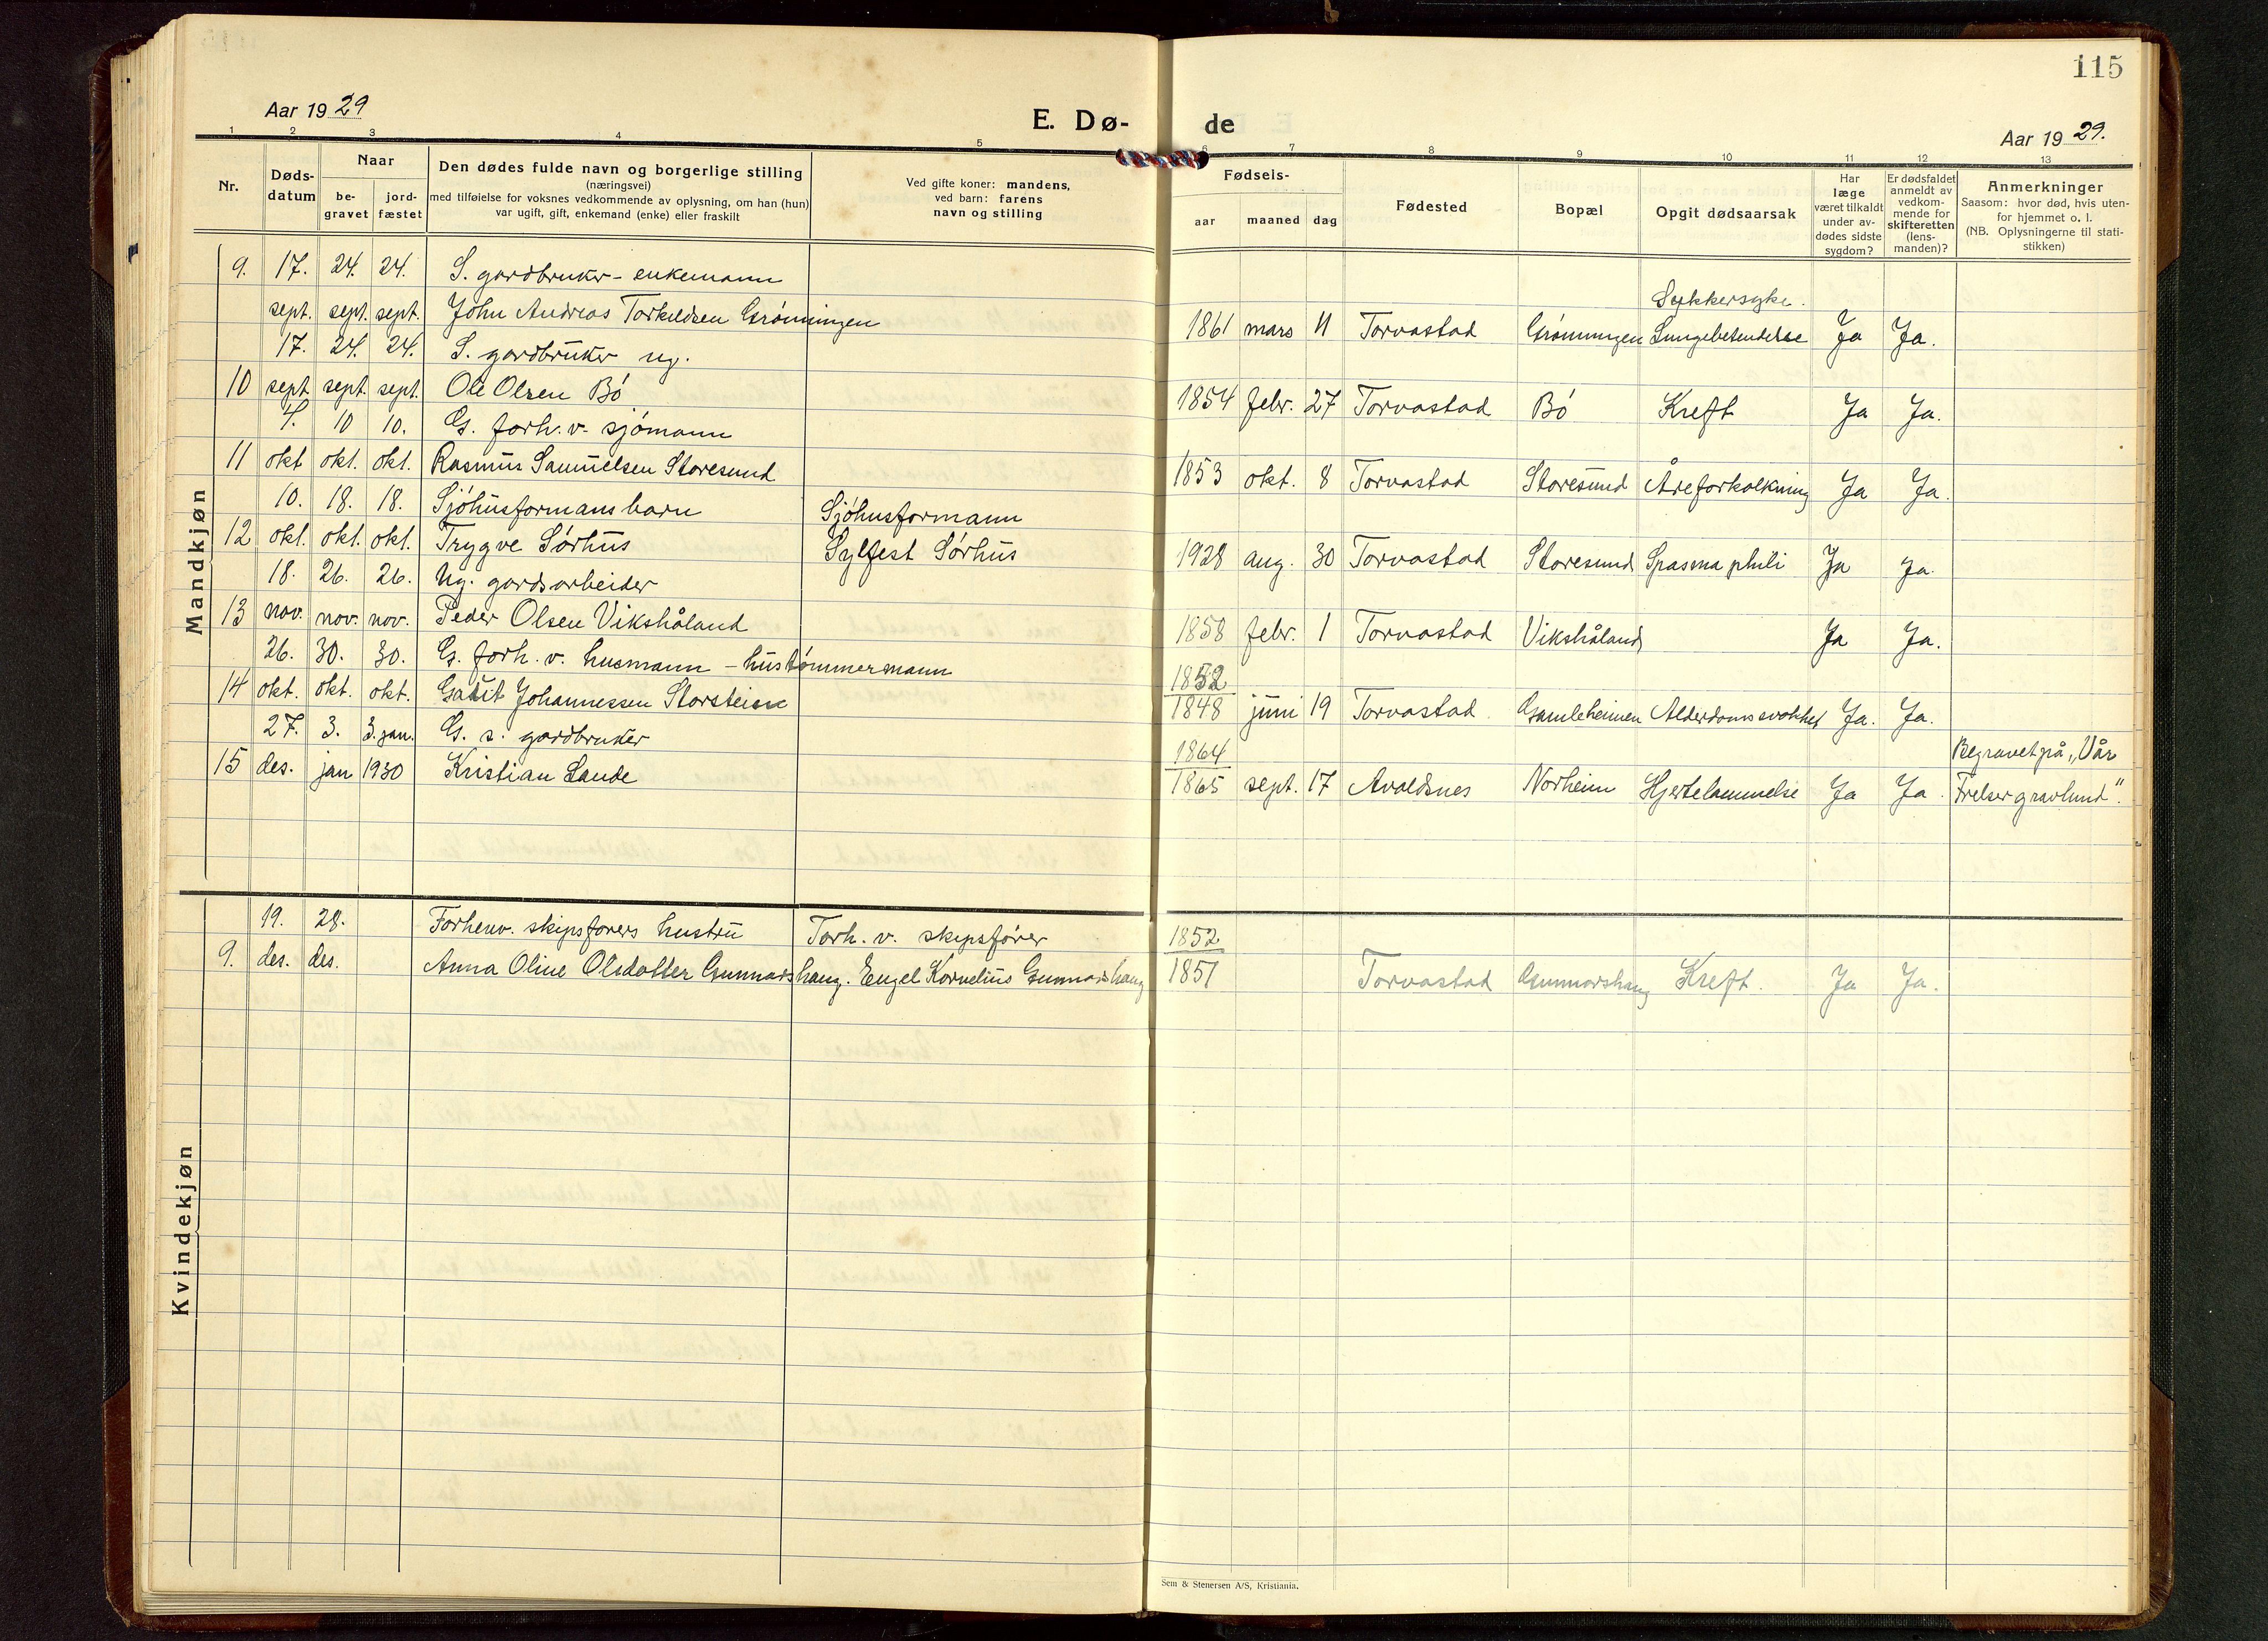 115
Aar 1929
E. Dø-
de
Aar 1929.
1 2 3 4 5 6 7 8 9 10 11 12 13
Nr.
Døds-
datum
Naar
be-
gravet
jord-
fæstet
Den dødes fulde navn og borgerlige stilling
(næringsvei)
med tilføielse for voksnes vedkommende av oplysning, om han (hun)
var ugift, gift, enkemand (enke) eller fraskilt
Ved gifte koner: mandens,
ved barn: farens
navn og stilling
Fødsels-
aar maaned dag
Fødested
Bopæl
Opgit dødsaarsak
Har
læge
været tilkaldt
under av-
dødes sidste
sygdom?
Er dødsfaldet
anmeldt av
vedkom-
mende for
skifteretten
(lens-
manden)?
Anmerkninger
Saasom: hvor død, hvis uten-
for hjemmet o. l.
(NB. Oplysningerne til stati-
stikken)
Mandkjøn
9. 17. 24. 24. S. gardbruker - enkemann
Sukkersyke.
sept. sept. sept. John Andreas Torkeldsen Grønningen
1861 mars 11 Torvastad Grønningen Lungebetendelse Ja Ja.
17. 24. 24. S. gardbruker ug.
10 sept. sept. sept. Ole Olsen Bó
1854 febr. 27 Torvastad Bó Kreft Ja Ja.
4. 10 10. G. forh. v. sjómann
11 okt okt. okt. Rasmus Samuelsen Storesund
1853 okt. 8 Torvastad Storesund Åreforkalkning Ja Ja.
10. 18. 18. Sjóhusformans barn Sjóhusformann
12 okt. okt. okt. Trygve Sørhus Sylfest Sørhus
1928 aug. 30 Torvastad Storesund Spasma phili Ja Ja.
18. 26. 26. Ug. gardsarbeider
13 nov. nov. nov. Peder Olsen Vikshåland
1858 febr. 1 Torvastad Vikshåland Ja Ja.
26. 30. 30. G. forh. v. husmann - hustómmermann
1852
14 okt. okt. okt. Johannessen Storstein
1848 juni 19 Torvastad. Gamleheimen Alderdomssvakhet Ja. Ja.
27. 3. 3. jan. G. s. gardbruker
1864 Begravet på „Vår
15 des. jan 1930 Kristian Lande
1865 sept. 17 Avaldsnes Norheim Hjertelammelse Ja Ja. Frelser gravlund".
Kvindekjøn
19. 28. Forhenv. skipsførers hustru Forh. v. skipsfører
1852
9. des. des. Anna Oline Olsdatter Gunnarshaug. Engel Kornelius Gunnarshaug
1851 Torvastad Gunnarshaug Kreft. Ja Ja.
Sem & Stenersen A/S, Kristiania.